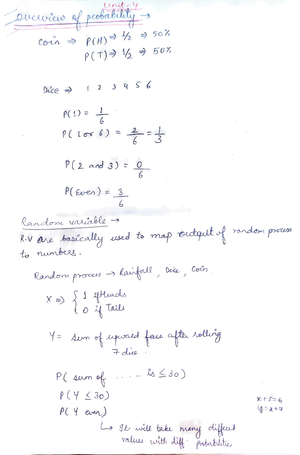 Unit-4
Overview of probability →
Coin ⇒ P(H) ⇒ 1/2 ⇒ 50%
P(T) ⇒ 1/2 ⇒ 50%
Dice ⇒ 1 2 3 4 5 6
P(1) = 1/6
P(1 or 6) = 2/6 = 1/3
P(2 and 3) = 0/6
P(Even) = 3/6
Random variable →
R.V are basically used to map output of random process
to numbers.
Random process → Rainfall, Dice, Coin.
X ⇒ { 1 if Heads
0 if Tails
Y = sum of upward face after rolling
7 dice.
P( sum of ..... is ≤ 30)
P( Y ≤ 30)
P( Y even)
↳ It will take many different
values with diff. probabilities
x+5=6
y=x+7